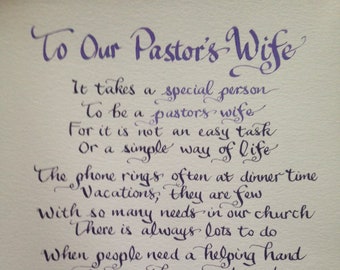 To Our Pastor's Wife
It takes a special person
To be a pastor's wife
For it is not an easy task
Or a simple way of life
The phone rings often at dinner time
Vacations, they are few
With so many needs in our church
There is always lots to do
When people need a helping hand